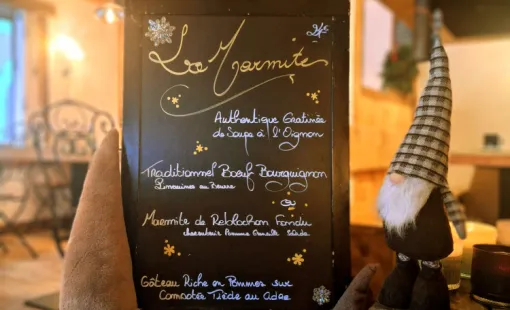 La Marmite
Authentique Gratinée
de Soupe à l'Oignon
Traditionnel Bœuf Bourguignon
au Beurre
ou
Marmite de Reblochon Fondu
Charcuterie Pomme Grenaille Salade
Gâteau Riche en Pommes sur
Compotée Tiède au Cidre